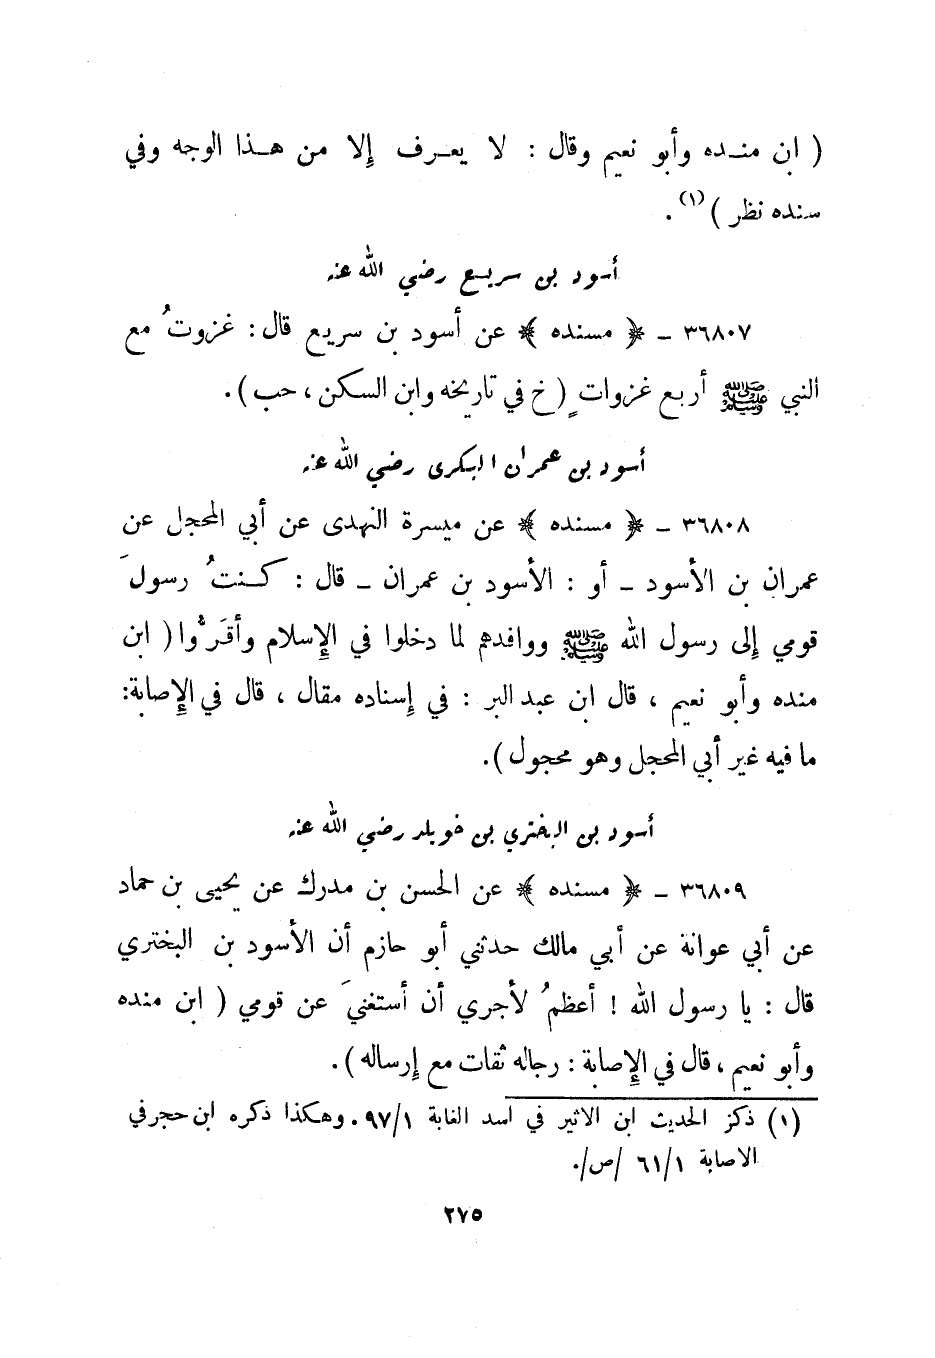 ( ابن منده وأبو نعيم وقال : لا يعرف إلا من هذا الوجه وفي
سنده نظر )(١) .
أسود بن سريع رضي الله عنه
٣٦٨٠٧ – ﴿ مسنده ﴾ عن أسود بن سريع قال : غزوتُ مع
النبي ﷺ أربع غزوات ٍ( خ في تاريخه وابن السكن ، حب ) .
أسود بن عمران البكرى رضي الله عنه
٣٦٨٠٨ – ﴿ مسنده ﴾ عن ميسرة النهدى عن أبي المحجل عن
عمران بن الأسود – أو : الأسود بن عمران – قال : كنتُ رسولَ
قومي إلى رسول الله ﷺ ووافدهم لما دخلوا في الإسلام وأقَرُّوا ( ابن
منده وأبو نعيم ، قال ابن عبد البر : في إسناده مقال ، قال في الإصابة :
ما فيه غير أبي المحجل وهو مجهول ) .
أسود بن البختري بن خويلد رضي الله عنه
٣٦٨٠٩ – ﴿ مسنده ﴾ عن الحسن بن مدرك عن يحيى بن حماد
عن أبي عوانة عن أبي مالك حدثني أبو حازم أن الأسود بن البختري
قال : يا رسول الله ! أعظمُ لأجري أن أستغنيَ عن قومي ( ابن منده
وأبو نعيم ، قال في الإصابة : رجاله ثقات مع إرساله ) .
(١) ذكر الحديث ابن الاثير في اسد الغابة ٩٧/١ . وهكذا ذكره ابن حجر في
الاصابة ٦١/١ /ص/.
٢٧٥